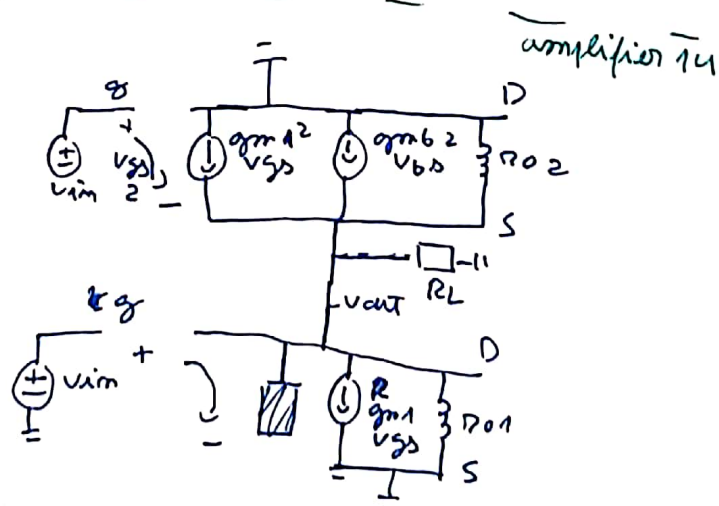 amplifier 14
g
D
+
vin
vgs
2
-
gm1 2
vgs
gmb 2
vbs
ro2
S
RL
vout
g
D
+
vin
-
gm1
vgs
ro1
S